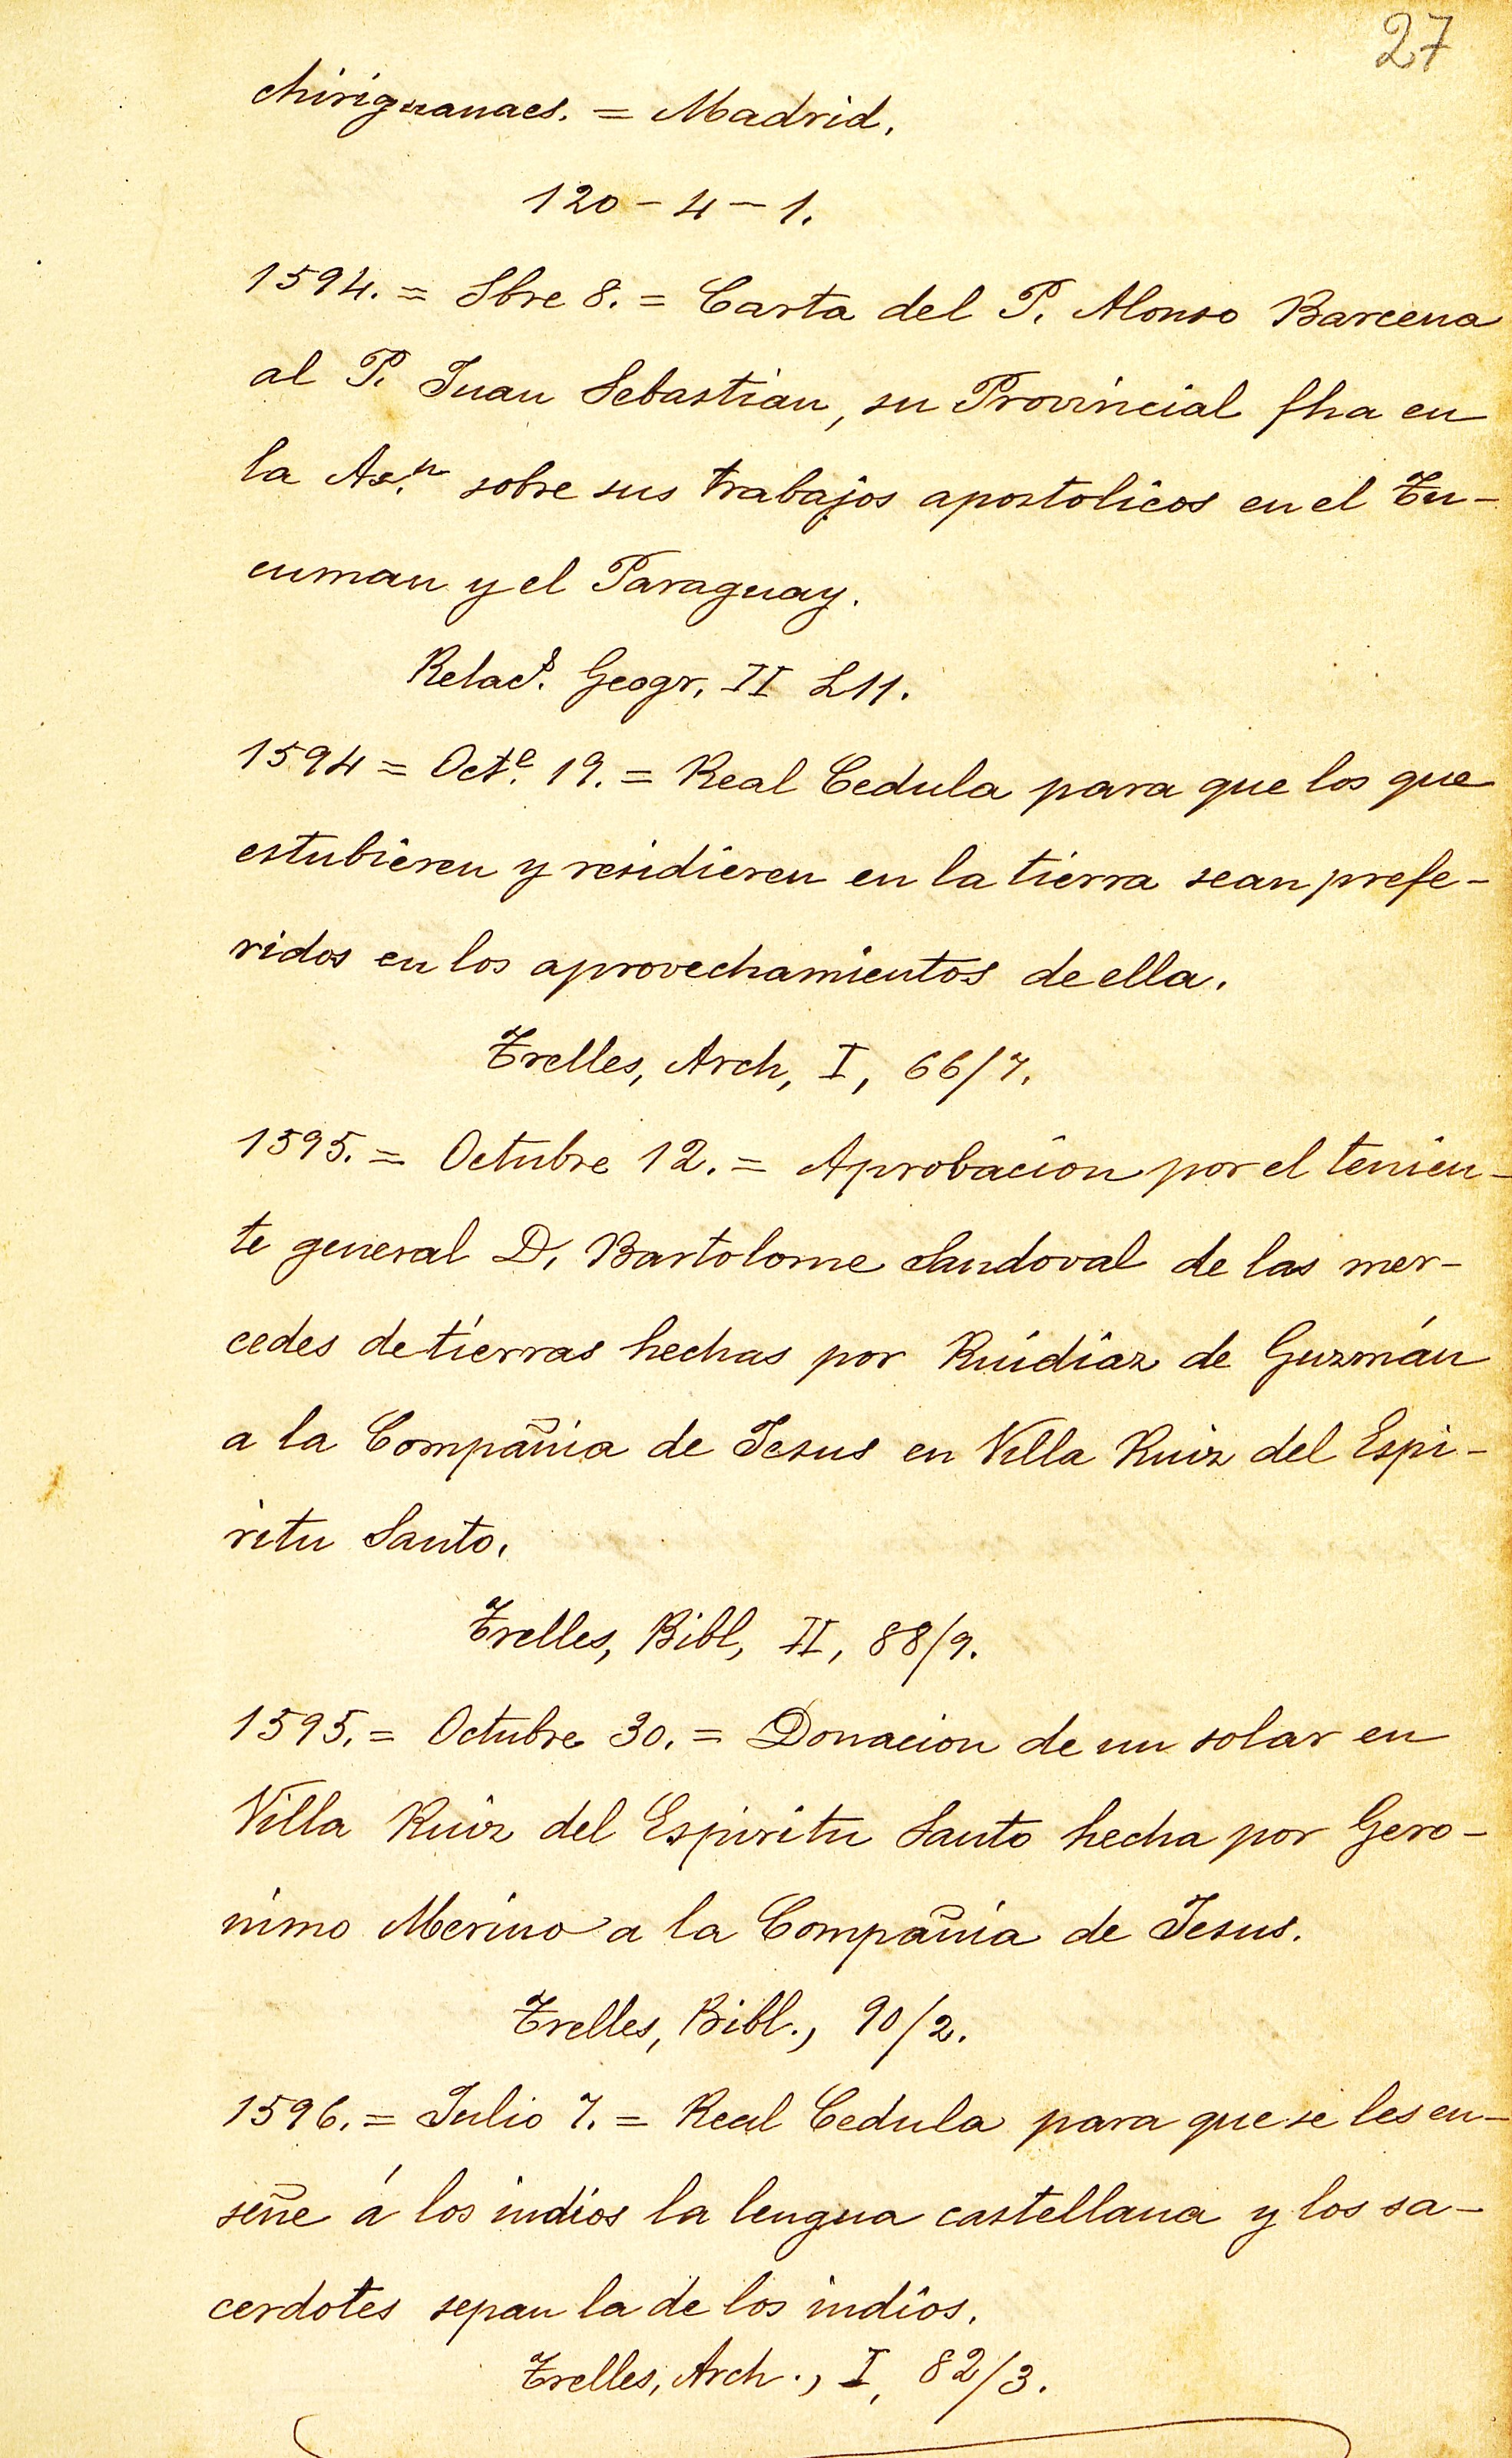 27
chiriguanaes. = Madrid.
120 - 4 - 1.
1594. = Sbre 8. = Carta del P. Alonso Barcena
al P. Juan Sebastian, su Provincial fha en
la As.n sobre sus trabajos apostolicos en el Tu-
cuman y el Paraguay.
Relacs. Geogr, II L11.
1594 = Octe. 19. = Real Cedula para que los que
estubieren y residieren en la tierra sean prefe-
ridos en los aprovechamientos de ella.
Trelles, Arch, I, 66/7.
1595. = Octubre 12. = Aprobacion por el tenien-
te general D. Bartolome Sandoval de las mer-
cedes de tierras hechas por Ruidiaz de Guzmán
a la Compañia de Jesus en Villa Ruiz del Espi-
ritu Santo.
Trelles, Bibl, II, 88/9.
1595. = Octubre 30. = Donacion de un solar en
Villa Ruiz del Espiritu Santo hecha por Gero-
nimo Merino a la Compañia de Jesus.
Trelles, Bibl., 90/2.
1596. = Julio 7. = Real Cedula para que se les en-
señe á los indios la lengua castellana y los sa-
cerdotes sepan la de los indios.
Trelles, Arch., I, 82/3.